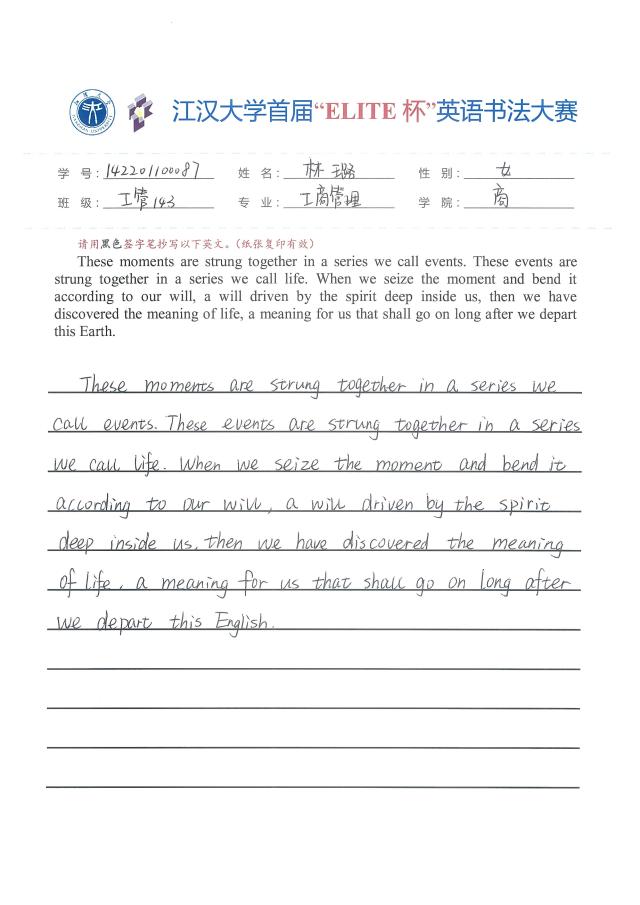 江汉大学首届“ELITE 杯”英语书法大赛
学 号: 142201100087 姓 名: 林璐 性 别: 女
班 级: 工管143 专 业: 工商管理 学 院: 商
请用黑色签字笔抄写以下英文。(纸张复印有效)
These moments are strung together in a series we call events. These events are
strung together in a series we call life. When we seize the moment and bend it
according to our will, a will driven by the spirit deep inside us, then we have
discovered the meaning of life, a meaning for us that shall go on long after we depart
this Earth.
These moments are strung together in a series we
call events. These events are strung together in a series
we call life. When we seize the moment and bend it
according to our will, a will driven by the spirit
deep inside us, then we have discovered the meaning
of life, a meaning for us that shall go on long after
we depart this English.